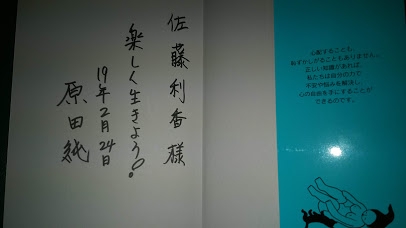 佐藤利香様
楽しく生きよう!
19年2月24日
原田純
心配することも、
あせりしがることもありません。
正しい知識があれば、
私たちは自分の力で
不安や悩みを解消し、
心の自由を手にすることが
できるのです。